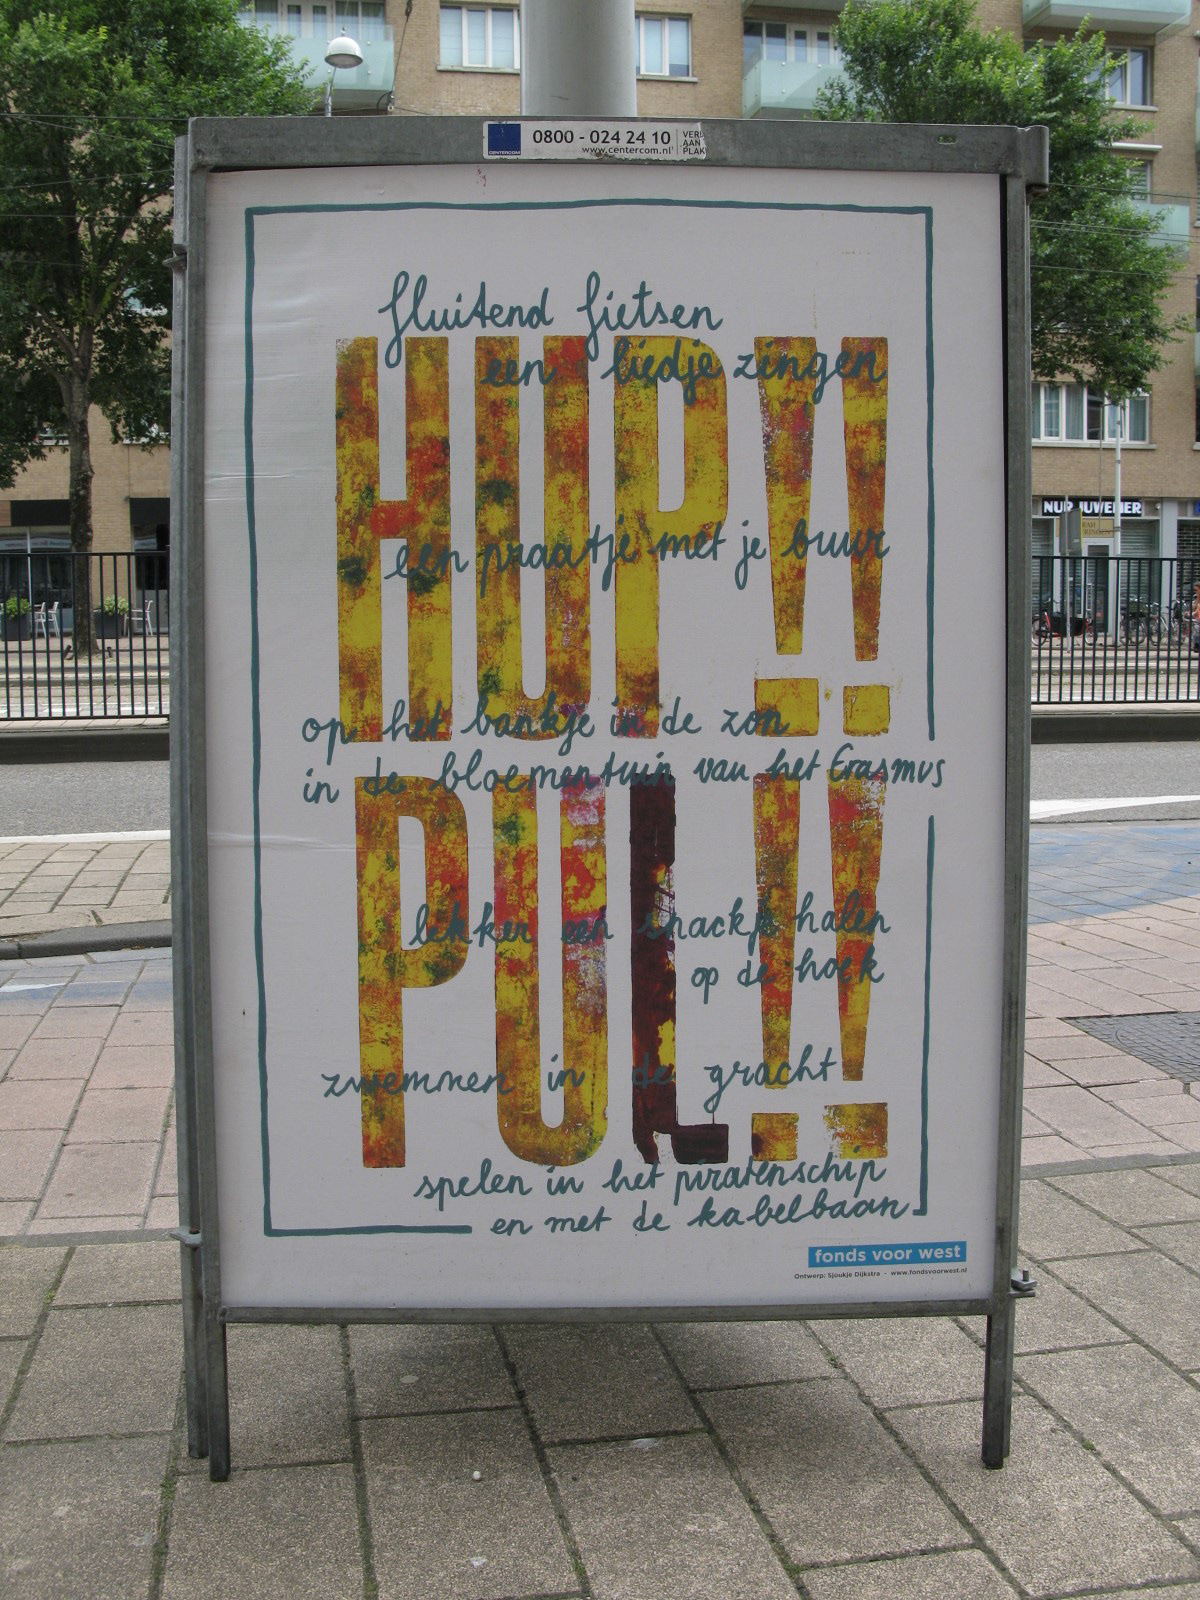 0800 - 024 24 10
www.centercom.nl
CENTERCOM
fluitend fietsen
een liedje zingen
HUP!!
een praatje met je buur
op het bankje in de zon
in de bloementuin van het Erasmus
PUL!!
lekker een snackje halen
op de hoek
zwemmen in de gracht
spelen in het piratenschip
en met de kabelbaan
fonds voor west
Ontwerp: Sjoukje Dijkstra - www.fondsvoorwest.nl
NUR JUWELIER